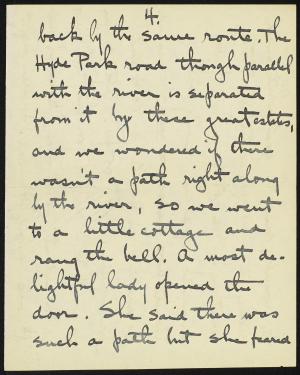 4.
back by the same route. The
Hyde Park road though parallel
with the river is separated
from it by these great estates,
and we wondered if there
wasn't a path right along
by the river, so we went
to a little cottage and
rang the bell. A most de-
lightful lady opened the
door. She said there was
such a path but she feared